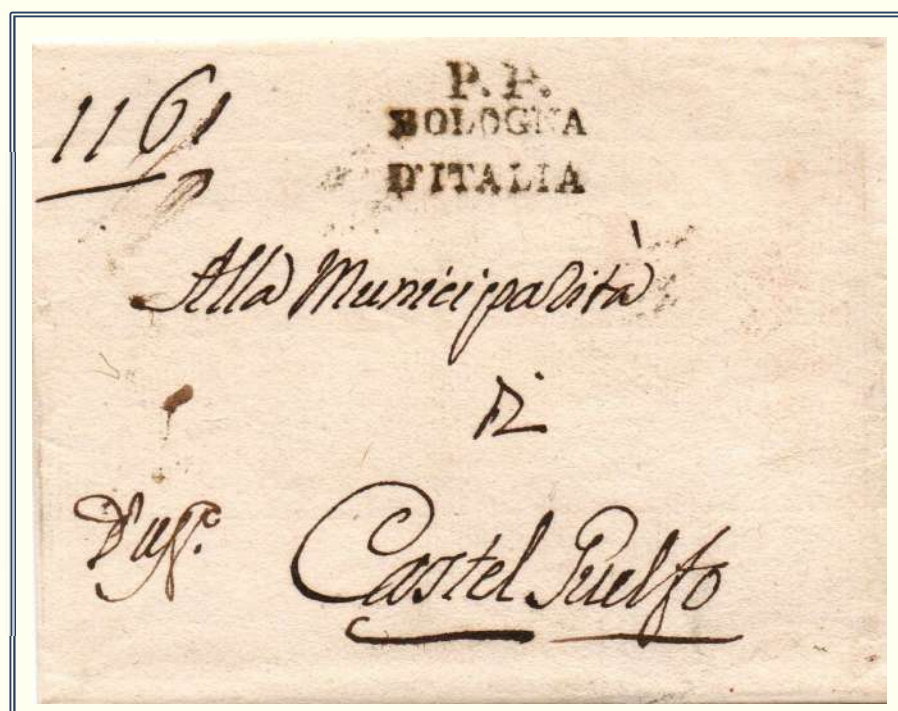 P.P.
BOLOGNA
D'ITALIA
1161
Alla Municipalità
di
D'uff.°
Castel Guelfo